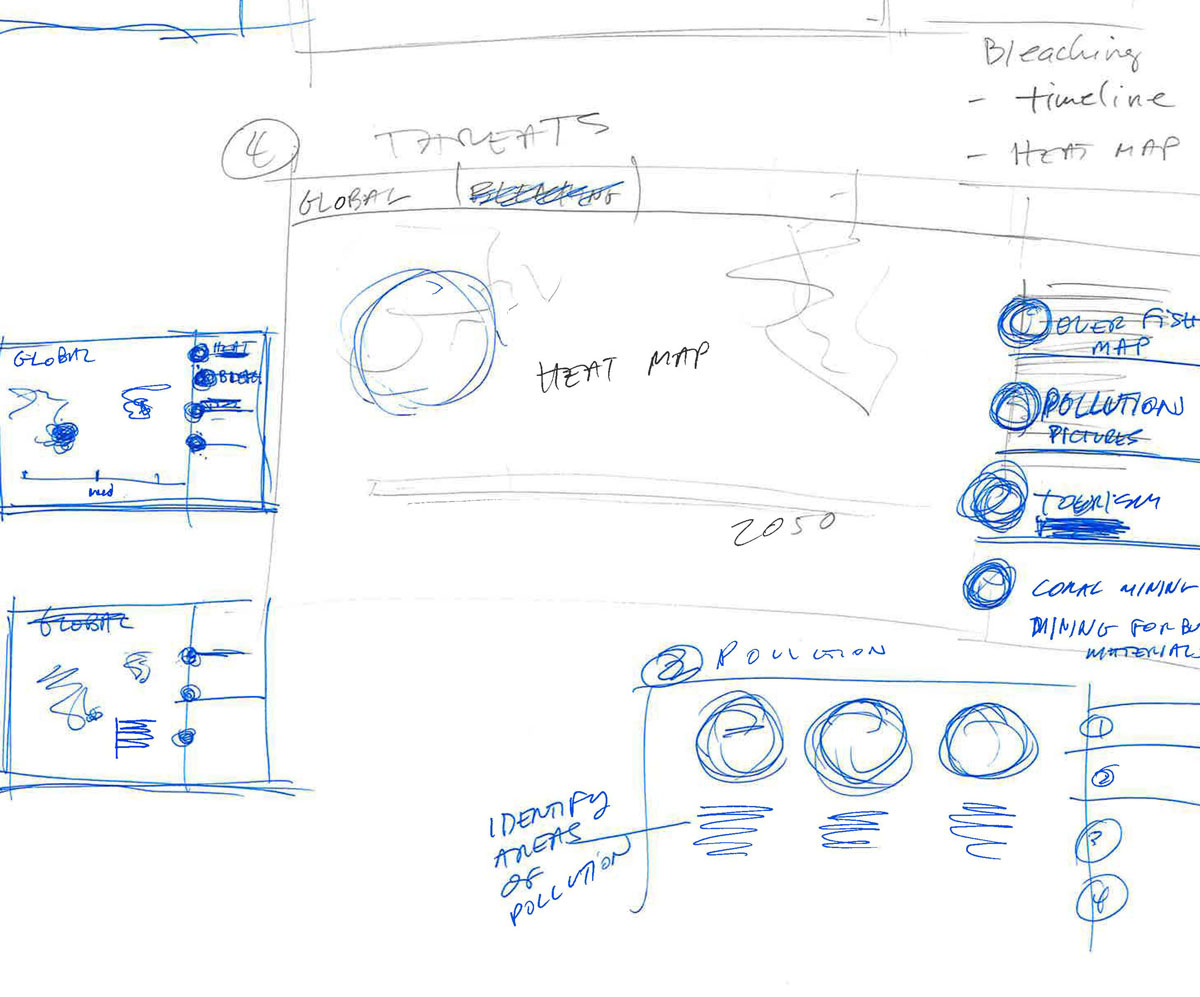 Bleaching
- timeline
- HEAT MAP
4
THREATS
GLOBAL
HEAT MAP
2050
OVER FISH
MAP
POLLUTION
PICTURES
TOURISM
CORAL MINING
MINING FOR BU
MATERIALS
GLOBAL
HEAT
BLEAC
med
GLOBAL
2 POLLUTION
1
2
3
4
IDENTIFY
AREAS
OF
POLLUTION